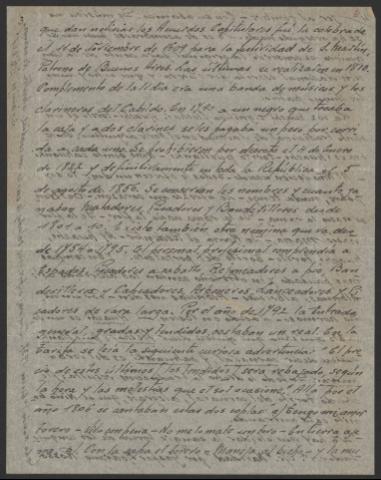 que dan noticias los Acuerdos Capitulares fué la celebrada
el 11 de Noviembre de 1609 para la festividad de S. Martin,
Patrono de Buenos Aires. Las últimas se realizaron en 1810.
Complemento de la lidia era una banda de músicos y los
clarineros del Cabildo. En 1790 a un negro que tocaba
la caja y a dos clarines se les pagaba un peso por corri-
da a cada uno. Se prohibieron por decreto el 4 de Enero
de 1822 y definitivamente en toda la República el 5
de agosto de 1856. Se conservan los nombres y cuanto ga-
naban Matadores, Picadores y Banderilleros desde
1801 a 10. Existe también otra nómina que va desde
de 1754 a 1795. El personal profesional comprendía a
Espadas, Picadores a caballo, Rejoneadores a pié, Ban
derilleros y Cacheteros, Arponeros, Lanceadores y Pi
cadores de vara larga. Por el año de 1792 la Entrada
general, gradas y tendidos costaban un real. En la
barrera se leía la siguiente curiosa advertencia: "El pre-
cio de estos últimos (los tendidos) será rebajado, según
la hora y las molestias que el sol ocasione." Allá por el
año 1806 se cantaban estas dos coplas: a) Tengo mi amor
torero - No me lo mate un toro - En tierra aje-
na. b) Con la capa el torero - Maneja el bicho - y la mu